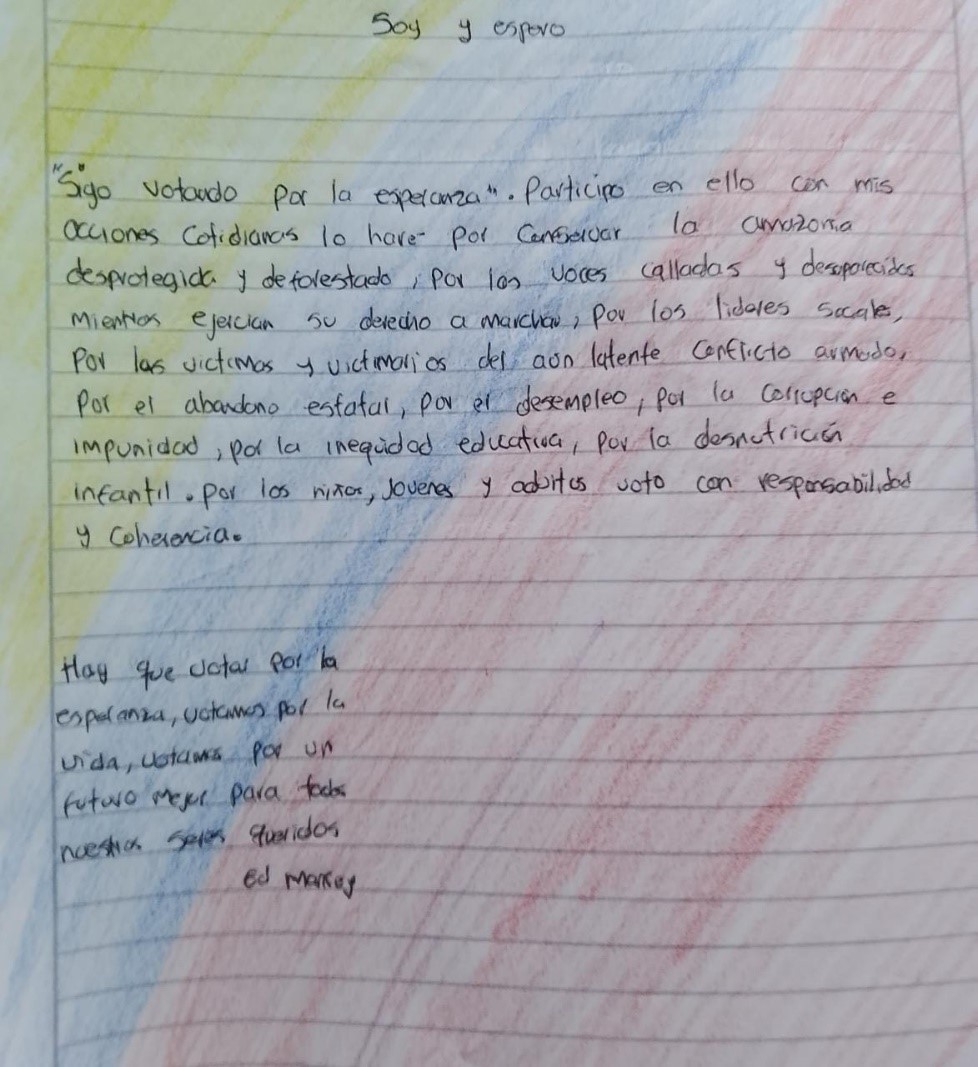 Soy y espero
"Sigo votando por la esperanza". Participo en ello con mis
acciones cotidianas lo hare por conservar la amazonia
desprotegida y deforestado, por las voces calladas y desaparecidos
mientras ejercian su derecho a marchar, por los lideres sociales,
por las victimas y victimarios del aun latente conflicto armado,
por el abandono estatal, por el desempleo, por la corrupcion e
impunidad, por la inequidad educativa, por la desnutrición
infantil. por los niños, jovenes y adultos voto con responsabilidad
y coherencia.
Hay que votar por la
esperanza, votamos por la
vida, votamos por un
futuro mejor para todos
nuestros seres queridos
Ed Markey